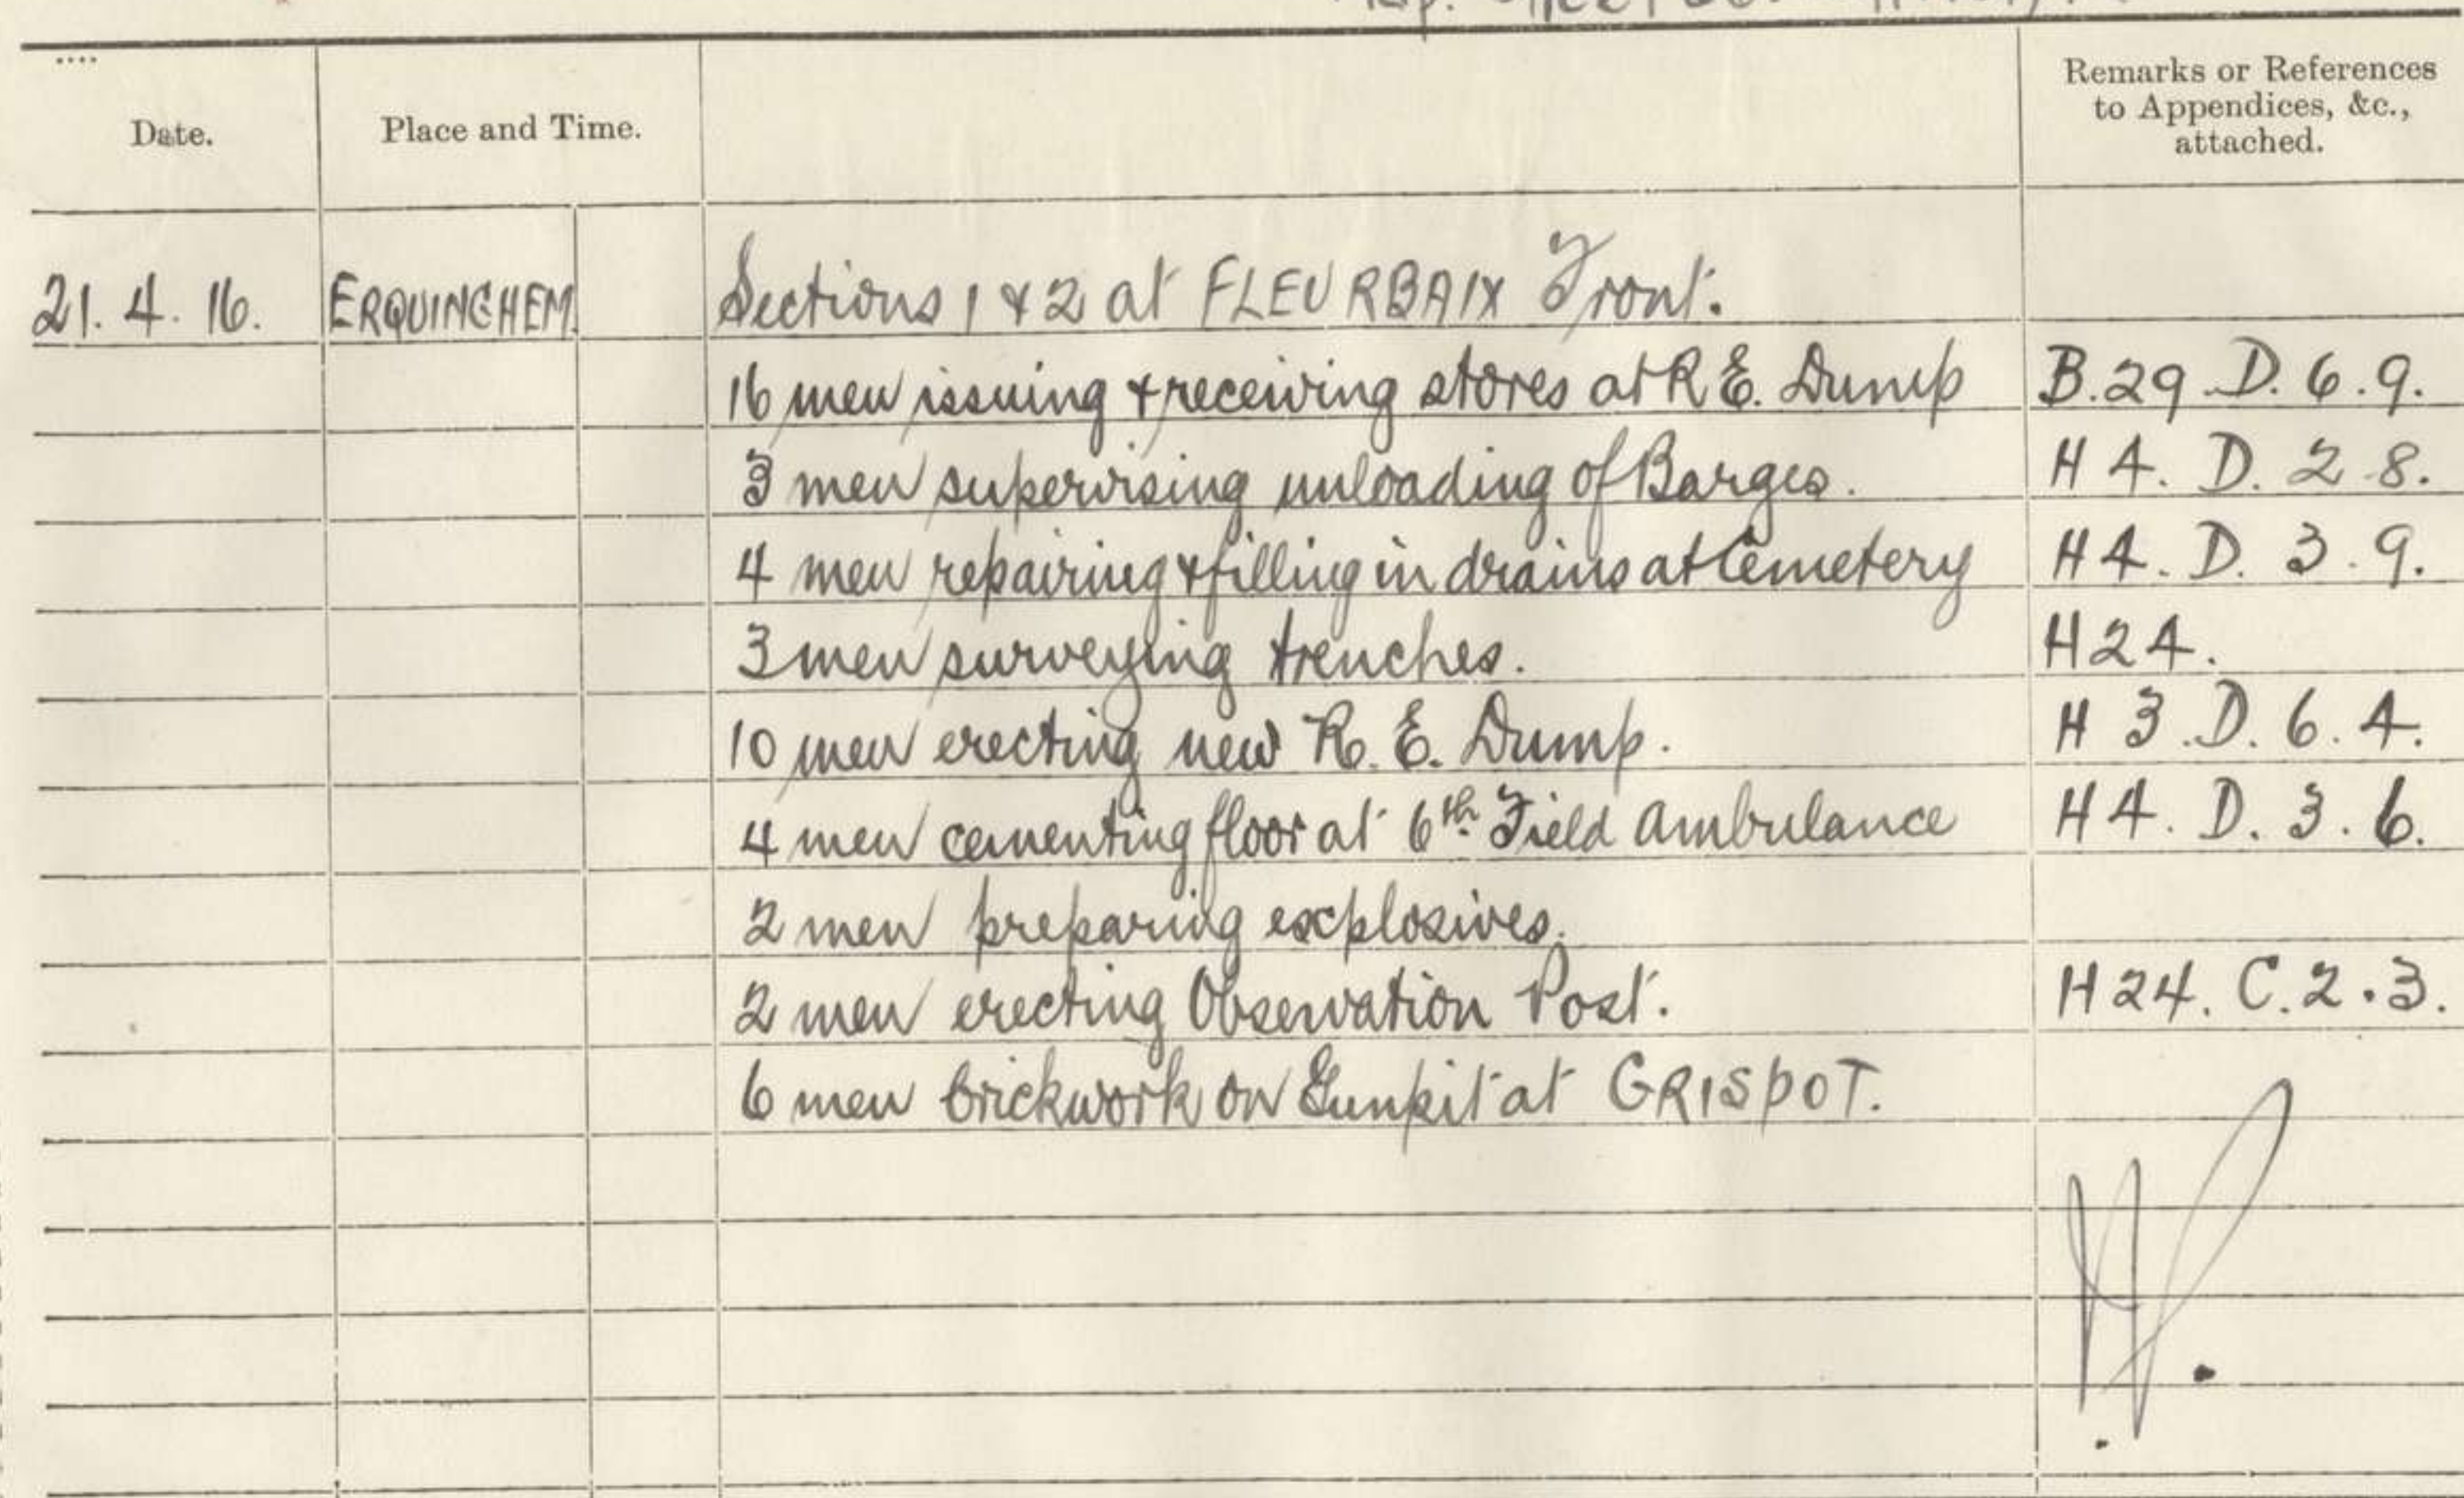 Date.
Place and Time.
Remarks or References
to Appendices, &c.,
attached.
21. 4. 16. ERQUINGHEM. Sections 1 & 2 at FLEURBAIX Front.
16 men issuing & receiving stores at R E. Dump B. 29 D. 6. 9.
3 men supervising unloading of Barges. H 4. D. 2 8.
4 men repairing & filling in drains at Cemetery H 4. D. 3. 9.
3 men surveying trenches. H 24.
10 men erecting new R. E. Dump. H 3. D. 6. 4.
4 men cementing floor at 6th Field Ambulance H 4. D. 3. 6.
2 men preparing explosives.
2 men erecting Observation Post. H 24. C. 2. 3.
6 men brickwork on Gunpit at GRISPOT.